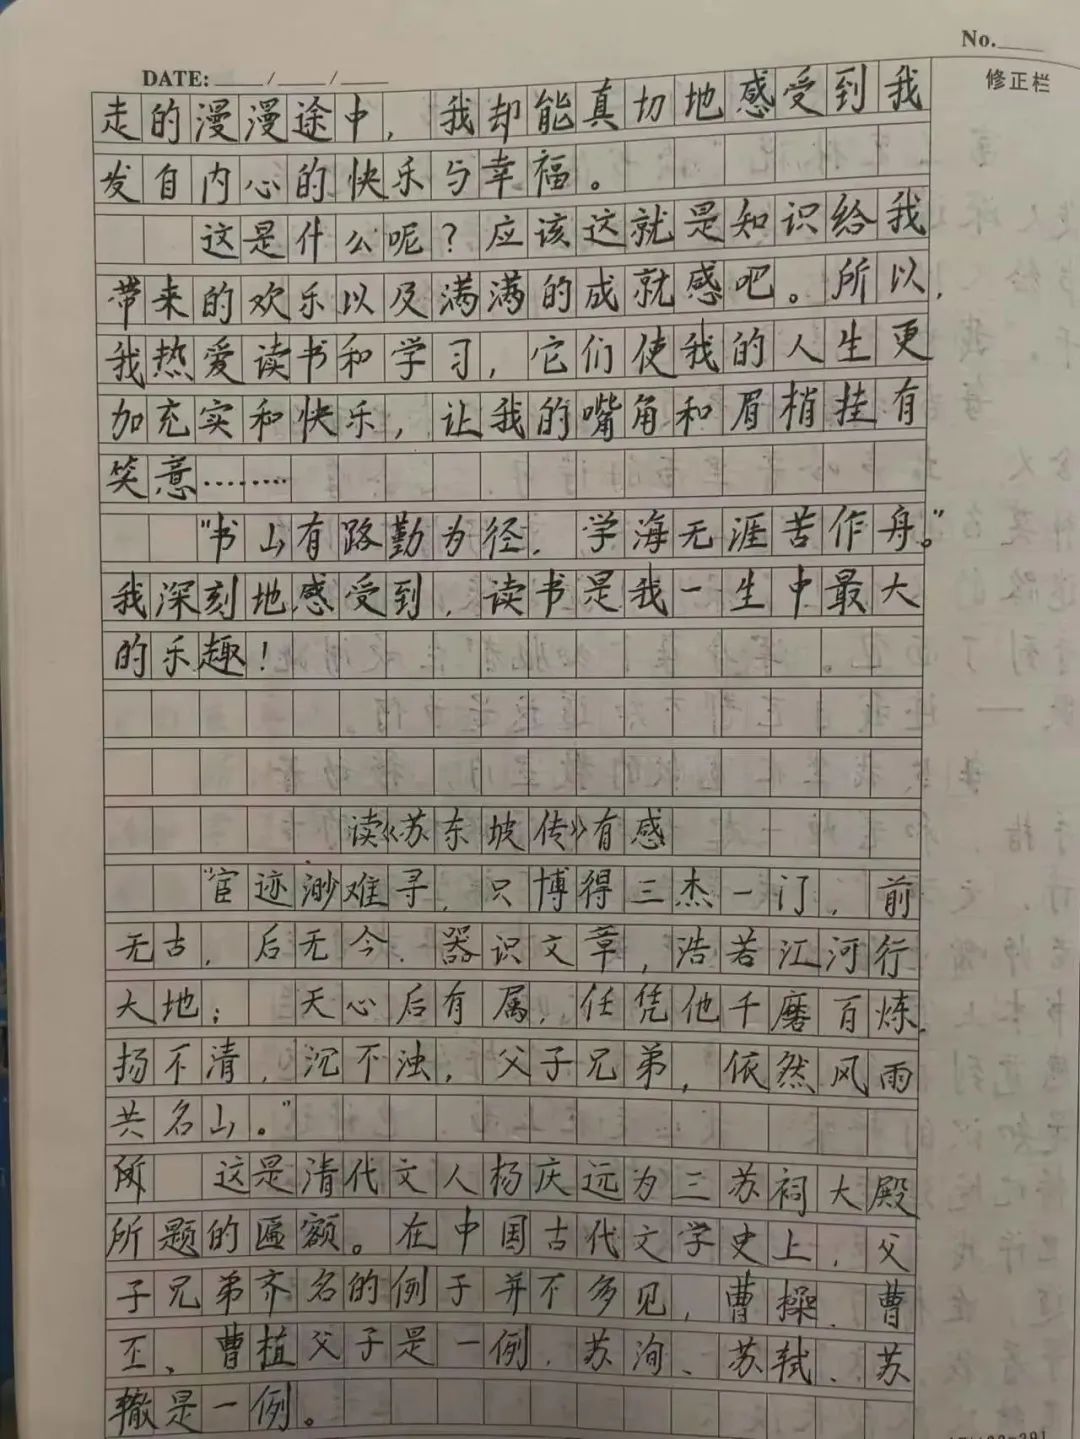 No.
DATE: / /
修正栏
走的漫漫途中，我却能真切地感受到我
发自内心的快乐与幸福。
这是什么呢？应该这就是知识给我
带来的欢乐以及满满的成就感吧。所以，
我热爱读书和学习，它们使我的人生更
加充实和快乐，让我的嘴角和眉梢挂有
笑意………
“书山有路勤为径，学海无涯苦作舟。”
我深刻地感受到，读书是我一生中最大
的乐趣！
读《苏东坡传》有感
“宦迹渺难寻，只博得三杰一门，前
无古，后无今，器识文章，浩若江河行
大地；天心后有属，任凭他千磨百炼，
扬不清，沉不浊，父子兄弟，依然风雨
共名山。”
这是清代文人杨庆远为三苏祠大殿
所题的匾额。在中国古代文学史上，父
子兄弟齐名的例子并不多见，曹操、曹
丕、曹植父子是一例，苏洵、苏轼、苏
辙是一例。